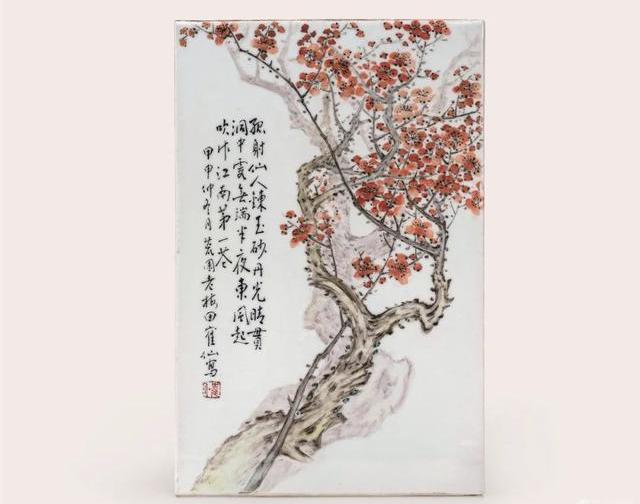 孤射仙人鍊玉砂丹光晴貫
洞中霞無端半夜東風起
吹作江南第一花
甲申仲冬月荒園老梅田隺仙寫